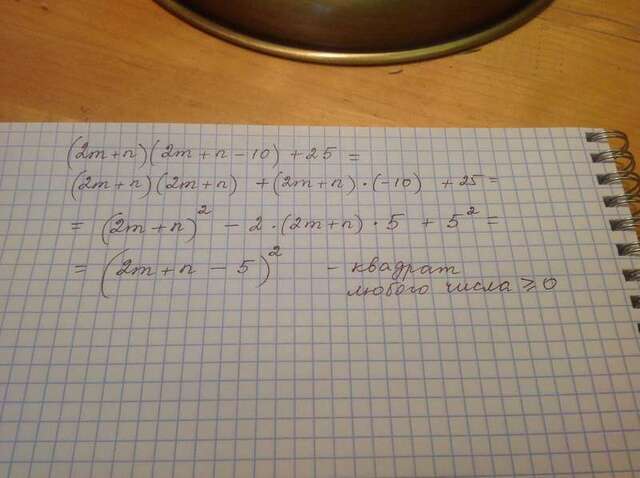 (2m+n)(2m+n-10)+25=
(2m+n)(2m+n) +(2m+n)·(-10) +25=
= (2m+n)² - 2·(2m+n)·5 + 5² =
= (2m+n-5)² - квадрат
любого числа ≥0